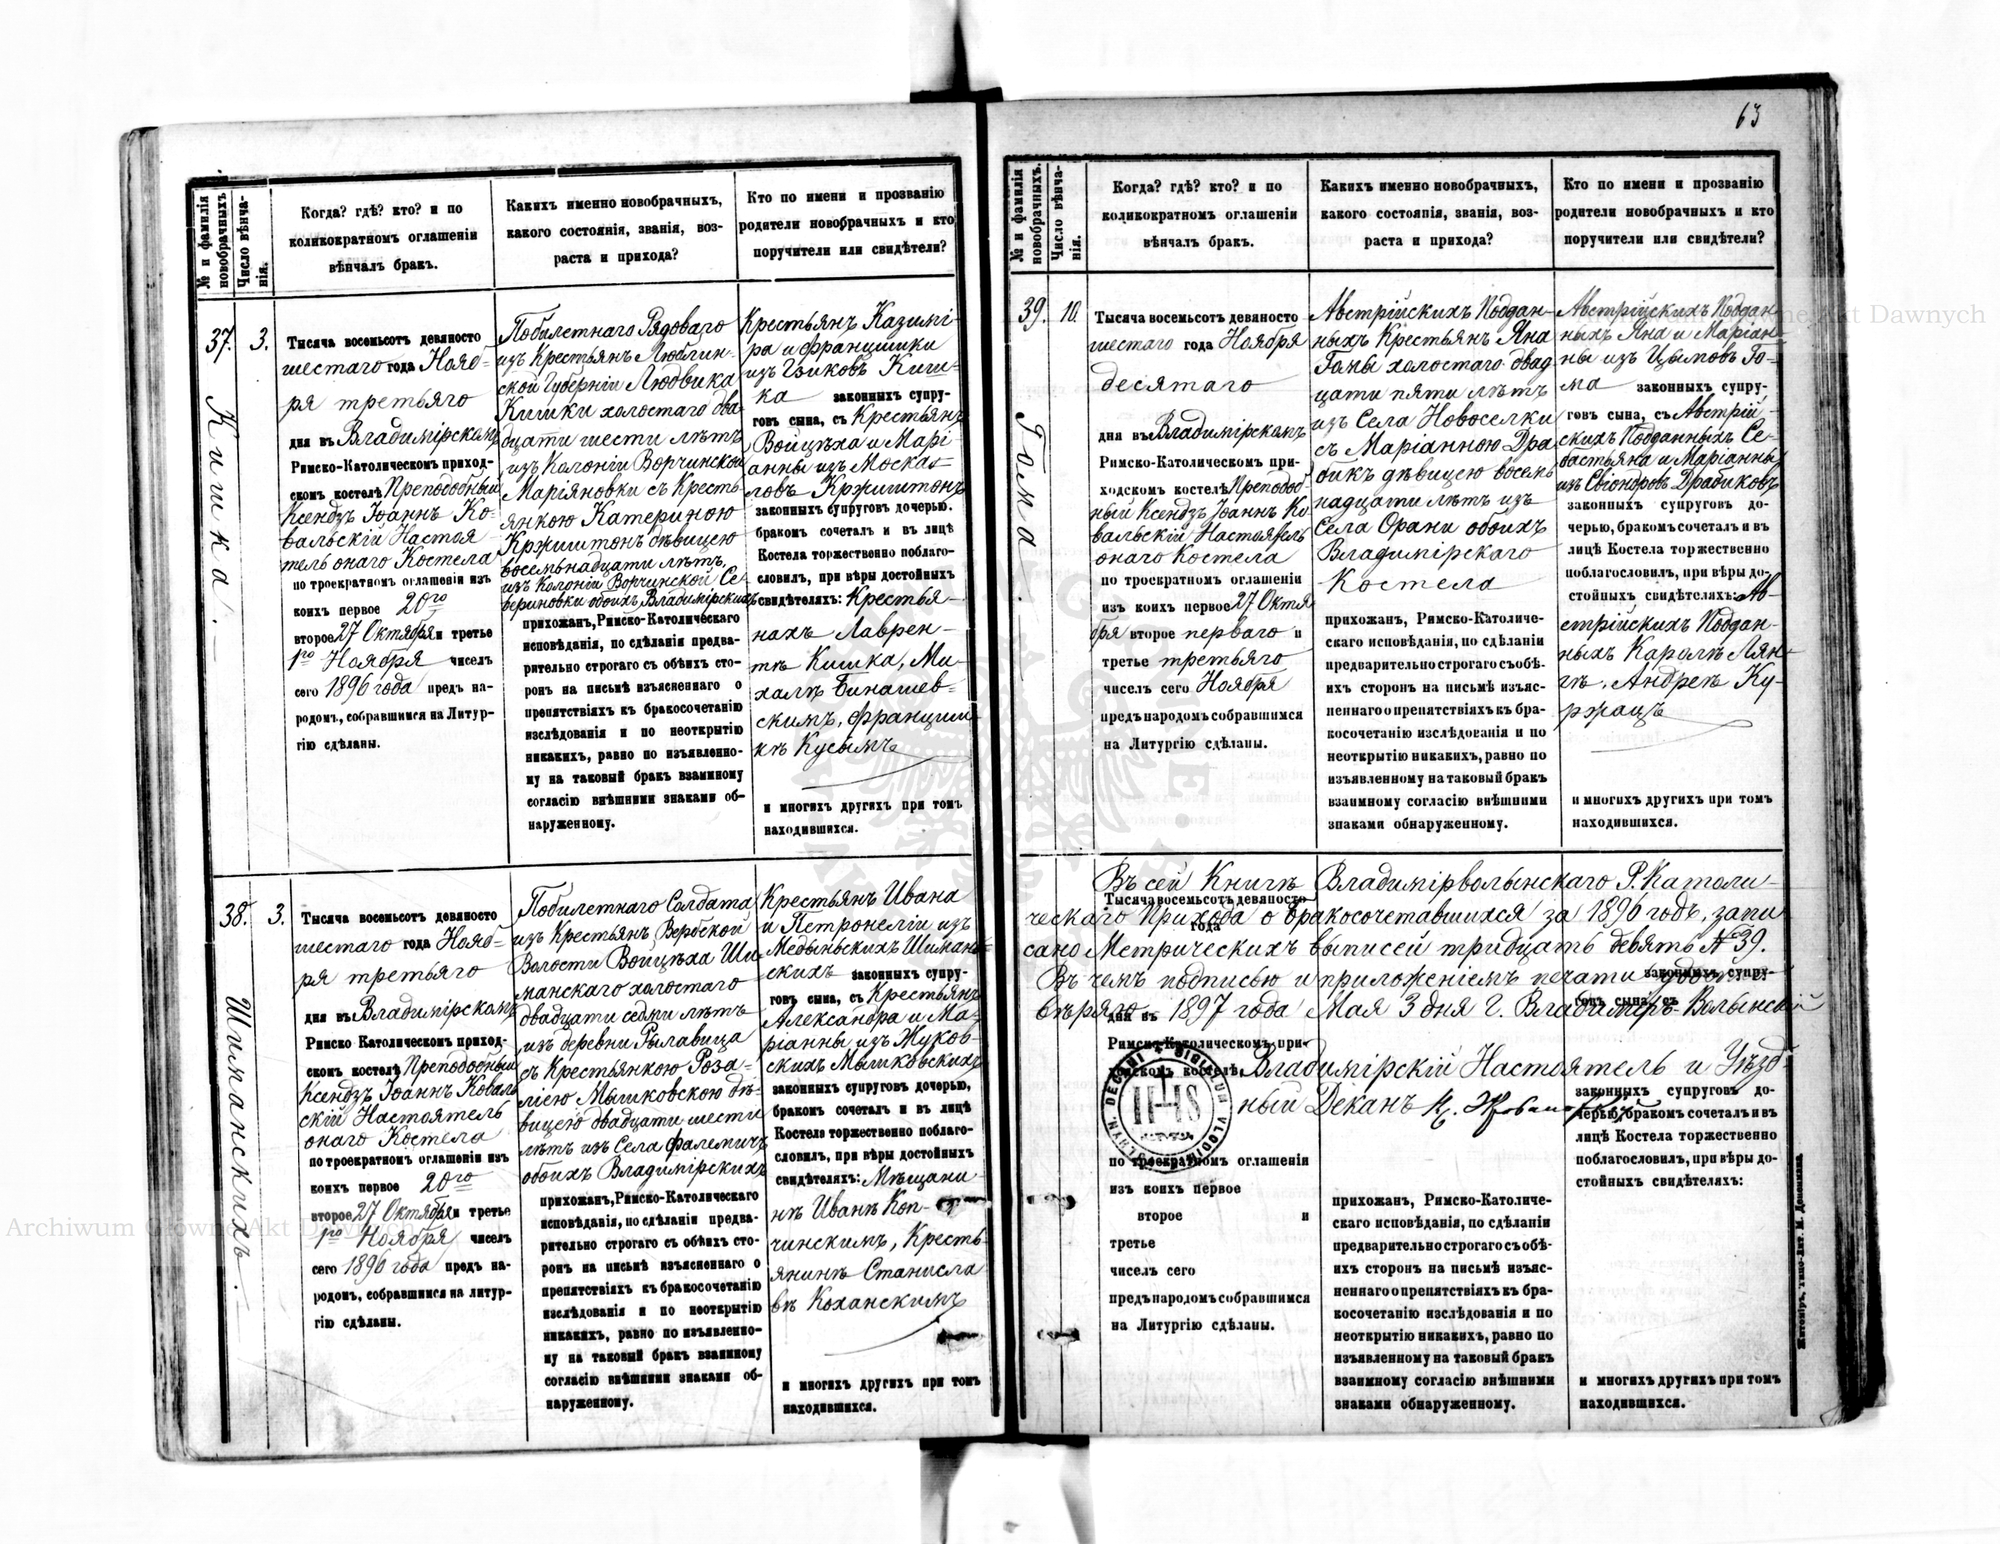 63
№ и фамилія новобрачныхъ
Число вѣнча-
нія.
Когда? гдѣ? кто? и по
коликократномъ оглашеніи
вѣнчалъ бракъ.
Какихъ именно новобрачныхъ,
какого состоянія, званія, воз-
раста и прихода?
Кто по имени и прозванію
родители новобрачныхъ и кто
поручители или свидѣтели?
37.
3.
Кишка.
Тысяча восемьсотъ девяносто
шестаго года Нояб-
ря третьяго
дня въ Владимірскомъ
Римско-Католическомъ приход-
скомъ костелѣ Преподобный
Ксендзъ Іоаннъ Ко-
вальскій Настоя
тель онаго Костела
по троекратномъ оглашеніи изъ
коихъ первое 20го
второе 27 Октября и третье
1го Ноября чиселъ
сего 1896 года предъ на-
родомъ, собравшимся на Литур-
гію сдѣланы.
Побилетнаго Рядоваго
изъ Крестьянъ Люблин-
ской Губерніи Людвика
Кишки холостаго два-
дцати шести лѣтъ
изъ Колоніи Ворчинской
Маріяновки съ Кресть-
янкою Катериною
Кржиштонъ дѣвицею
восемьнадцати лѣтъ,
изъ Колоніи Ворчинской Се-
вериновки обоихъ Владимірскихъ
прихожанъ, Римско-Католическаго
исповѣданія, по сдѣланіи предва-
рительно строгаго съ обѣихъ сто-
ронъ на письмѣ изъясненнаго о
препятствіяхъ къ бракосочетанію
изслѣдованія и по неоткрытію
никакихъ, равно по изъявленно-
му на таковый бракъ взаимному
согласію внѣшними знаками об-
наруженному.
Крестьянъ Казимі-
ра и Францишки
изъ Гзиковъ Киш-
ка законныхъ супру-
говъ сына, съ Крестьянъ
Войцѣха и Марі-
анны изъ Моска-
ловъ Кржиштонъ
законныхъ супруговъ дочерью.
бракомъ сочеталъ и въ лицѣ
Костела торжественно поблаго-
словилъ, при вѣры достойныхъ
свидѣтеляхъ: Крестья-
нахъ Лаврен-
тѣ Кишка, Ми-
халѣ Бинашев-
скимъ, Францишк
кѣ Кусымъ
и многихъ другихъ при томъ
находившихся.
38.
3.
Шиманскихъ.
Тысяча восемьсотъ девяносто
шестаго года Нояб-
ря третьяго
дня въ Владимірскомъ
Римско Католическомъ приход-
скомъ костелѣ Преподобный
Ксендзъ Іоаннъ Коваль
скій Настоятель
онаго Костела
по троекратномъ оглашеніи изъ
коихъ первое 20го
второе 27 Октября и третье
1го Ноября чиселъ
сего 1896 года предъ на-
родомъ, собравшимся на литур-
гію сдѣланы.
Побилетнаго Солдата
изъ Крестьянъ Вербской
Волости Войцѣха Ши-
манскаго холостаго
двадцати седми лѣтъ
изъ деревни Рылавица
съ Крестьянкою Роза-
ліею Мышковскою дѣ-
вицею двадцати шести
лѣтъ изъ Села Фалемичъ
обоихъ Владимірскихъ
прихожанъ, Римско-Католическаго
исповѣданія, по сдѣланіи предва-
рительно строгаго съ обѣихъ сто-
ронъ на письмѣ изъясненнаго о
препятствіяхъ къ бракосочетанію
изслѣдованія и по неоткрытію
никакихъ, равно по изъявленно-
му на таковый бракъ взаимному
согласію внѣшними знаками об-
наруженному.
Крестьянъ Ивана
и Петронеліи изъ
Медыньскихъ Шиман-
скихъ законныхъ супру-
говъ сына, съ Крестьянъ
Александра и Ма-
ріанны изъ Жуков-
скихъ Мышковскихъ
законныхъ супруговъ дочерью,
бракомъ сочеталъ и въ лицѣ
Костела торжественно поблаго-
словилъ, при вѣры достойныхъ
свидѣтеляхъ: Мѣщани-
нѣ Иванѣ Коп-
чинскимъ, Кресть-
янинѣ Станисла
вѣ Коханскимъ
и многихъ другихъ при томъ
находившихся.
№ и фамилія новобрачныхъ.
Число вѣнча-
нія.
Когда? гдѣ? кто? и по
коликократномъ оглашеніи
вѣнчалъ бракъ.
Какихъ именно новобрачныхъ,
какого состоянія, званія, воз-
раста и прихода?
Кто по имени и прозванію
родители новобрачныхъ и кто
поручители или свидѣтели?
39.
10.
Гома.
Тысяча восемьсотъ девяносто
шестаго года Ноября
десятаго
дня въ Владимірскомъ
Римско-Католическомъ при-
ходскомъ костелѣ Преподоб
ный Ксендзъ Іоаннъ Ко
вальскій Настоятель
онаго Костела
по троекратномъ оглашеніи
изъ коихъ первое 27 Октя
бря второе перваго и
третье третьяго
чиселъ сего Ноября
предъ народомъ собравшимся
на Литургію сдѣланы.
Австрійскихъ Поддан-
ныхъ Крестьянъ Яна
Гомы холостаго двад
цати пяти лѣтъ
изъ Села Новоселки
съ Маріанною Дра
бикъ дѣвицею восемь
надцати лѣтъ изъ
Села Орани обоихъ
Владимірскаго
Костела
прихожанъ, Римско-Католиче-
скаго исповѣданія, по сдѣланіи
предварительно строгаго съ обѣ-
ихъ сторонъ на письмѣ изъяс-
неннаго о препятствіяхъ къ бра-
косочетанію изслѣдованія и по
неоткрытію никакихъ, равно по
изъявленному на таковый бракъ
взаимному согласію внѣшними
знаками обнаруженному.
Австрійскихъ Поддан-
ныхъ Яна и Маріан-
ны изъ Цымовъ Го-
ма законныхъ супру-
говъ сына, съ Австрій-
скихъ Подданныхъ Се-
бастьяна и Маріанны
изъ Свіондровъ Драбиковъ
законныхъ супруговъ до-
черью, бракомъ сочеталъ и въ
лицѣ Костела торжественно
поблагословилъ, при вѣры до-
стойныхъ свидѣтеляхъ: Ав-
стрійскихъ Поддан-
ныхъ Каролѣ Лян-
гѣ, Андреѣ Ку-
ржацъ
и многихъ другихъ при томъ
находившихся.
Въ сей Книгѣ Владимірволынскаго Р. Католи-
Тысяча восемьсотъ девяносто
ческаго Прихода о бракосочетавшихся за 1896 годъ, запи
года
сано Метрическихъ выписей тридцать девять № 39.
Въ чемъ подписью и приложеніемъ печати удосто-
законныхъ супру-
вѣряю 1897 года Мая 3 дня г. Владиміръ-Волынскій
дня въ
говъ сына, съ
Римско-Католическомъ при-
ходскомъ костелѣ
Владимірскій Настоятель и Уѣзд-
ный Деканъ К.
IHS
законныхъ супруговъ до-
черью, бракомъ сочеталъ и въ
лицѣ Костела торжественно
поблагословилъ, при вѣры до-
стойныхъ свидѣтеляхъ:
по троекратномъ оглашеніи
изъ коихъ первое
второе и
третье
чиселъ сего
предъ народомъ собравшимся
на Литургію сдѣланы.
прихожанъ, Римско-Католиче-
скаго исповѣданія, по сдѣланіи
предварительно строгаго съ обѣ-
ихъ сторонъ на письмѣ изъяс-
неннаго о препятствіяхъ къ бра-
косочетанію изслѣдованія и по
неоткрытію никакихъ, равно по
изъявленному на таковый бракъ
взаимному согласію внѣшними
знаками обнаруженному.
и многихъ другихъ при томъ
находившихся.
Житоміръ, типо-лит. М. Дененмана.
Archiwum Główne Akt Dawnych
Archiwum Główne Akt Dawnych